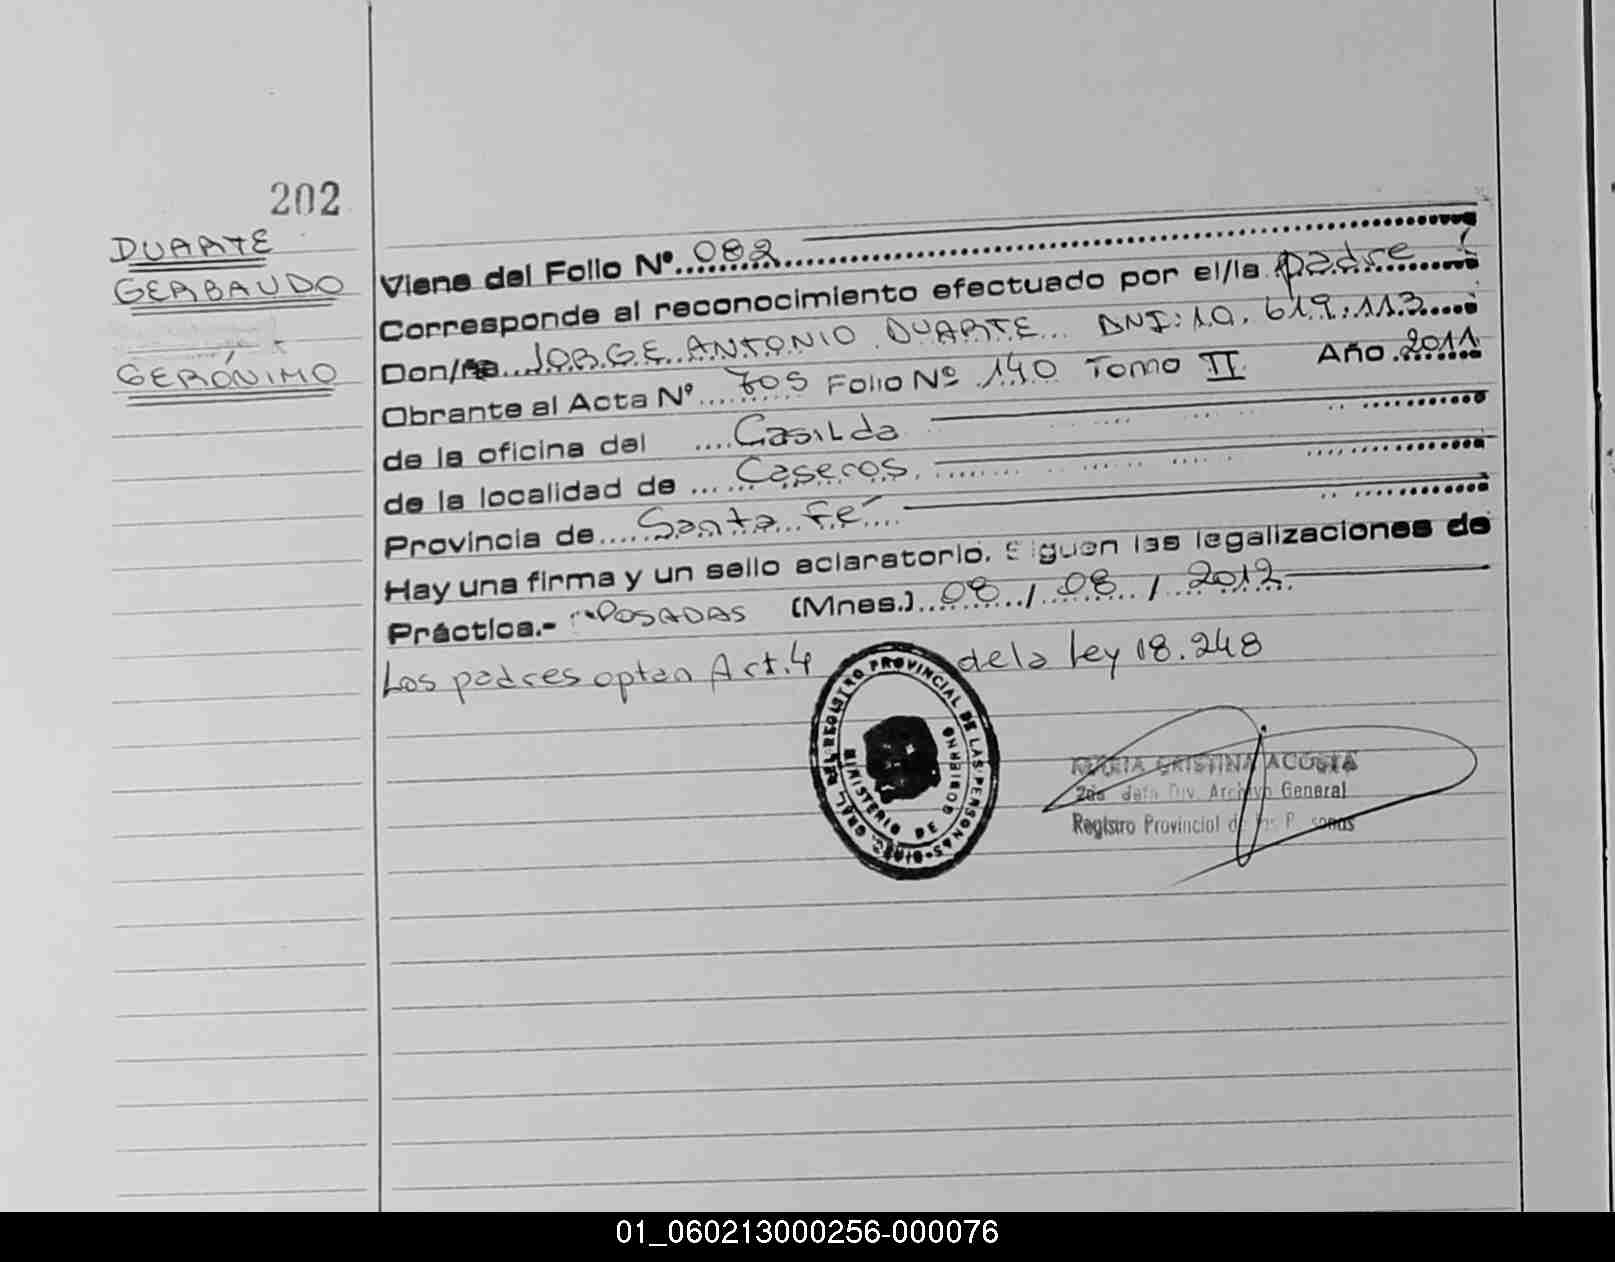 202
DUARTE
GERBAUDO
GERÓNIMO
Viene del Folio Nº 082
Corresponde al reconocimiento efectuado por el/la padre
Don/ña JORGE ANTONIO DUARTE DNI: 10.619.113
Obrante al Acta Nº 705 Folio Nº 140 Tomo II Año 2011
de la oficina del Casilda
de la localidad de Caseros
Provincia de Santa Fé
Hay una firma y un sello aclaratorio. Siguen las legalizaciones de
Práctica.- POSADAS (Mnes.) 08 / 08 / 2012
Los padres optan Art. 4 de la Ley 18.248
REGISTRO PROVINCIAL DE LAS PERSONAS
MINISTERIO DE GOBIERNO
MARIA CRISTINA ACOSTA
2da Jefa Div. Archivo General
Registro Provincial de las Personas
01_060213000256-000076